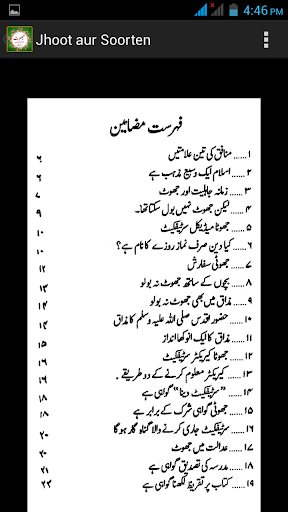 4:46 PM
Jhoot aur Soorten
فہرست مضامین
۱...... منافق کی تین علامتیں ۶
۲...... اسلام ایک وسیع مذہب ہے ۶
۳...... زمانہ جاہلیت اور جھوٹ ۷
۴...... لیکن جھوٹ نہیں بول سکتا تھا۔ ۹
۵...... جھوٹا میڈیکل سرٹیفکیٹ ۱۰
۶...... کیا دین صرف نماز روزے کا نام ہے؟ ۱۰
۷...... جھوٹی سفارش ۱۲
۸...... بچوں کے ساتھ جھوٹ نہ بولو
۹...... مذاق میں بھی جھوٹ نہ بولو
۱۰...... حضور اقدس صلی اللہ علیہ وسلم کا مذاق
۱۱...... مذاق کا ایک انوکھا انداز
۱۲...... جھوٹا کیریکٹر سرٹیفکیٹ
۱۳...... کیریکٹر معلوم کرنے کے دو طریقے۔
۱۴...... "سرٹیفکیٹ دینا" گواہی ہے ۱۸
۱۵...... جھوٹی گواہی شرک کے برابر ہے ۱۸
۱۶...... سرٹیفکیٹ جاری کرنے والا گناہ گار ہوگا ۲۰
۱۷...... عدالت میں جھوٹ ۲۰
۱۸...... مدرسہ کی تصدیق گواہی ہے ۲۱
۱۹...... کتاب پر تقریظ لکھنا گواہی ہے ۲۲